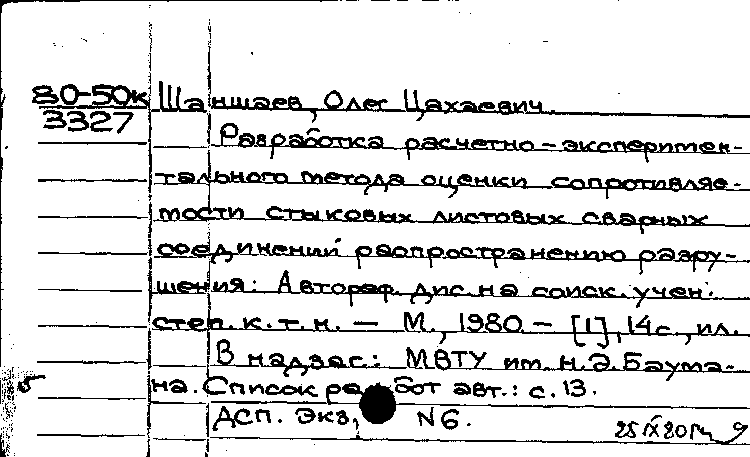 80-50к Шаншаев, Олег Цахаевич.
3327
Разработка расчетно-эксперимен-
тального метода оценки сопротивляе-
мости стыковых листовых сварных
соединений распространению разру-
шения: Автореф. дис. на соиск. учен.
степ. к.т.н. — М., 1980 — [1], 14с., ил.
В надзаг.: МВТУ им. Н.Э. Баума-
на. Список работ авт.: с. 13.
ДСП. Экз. N6.